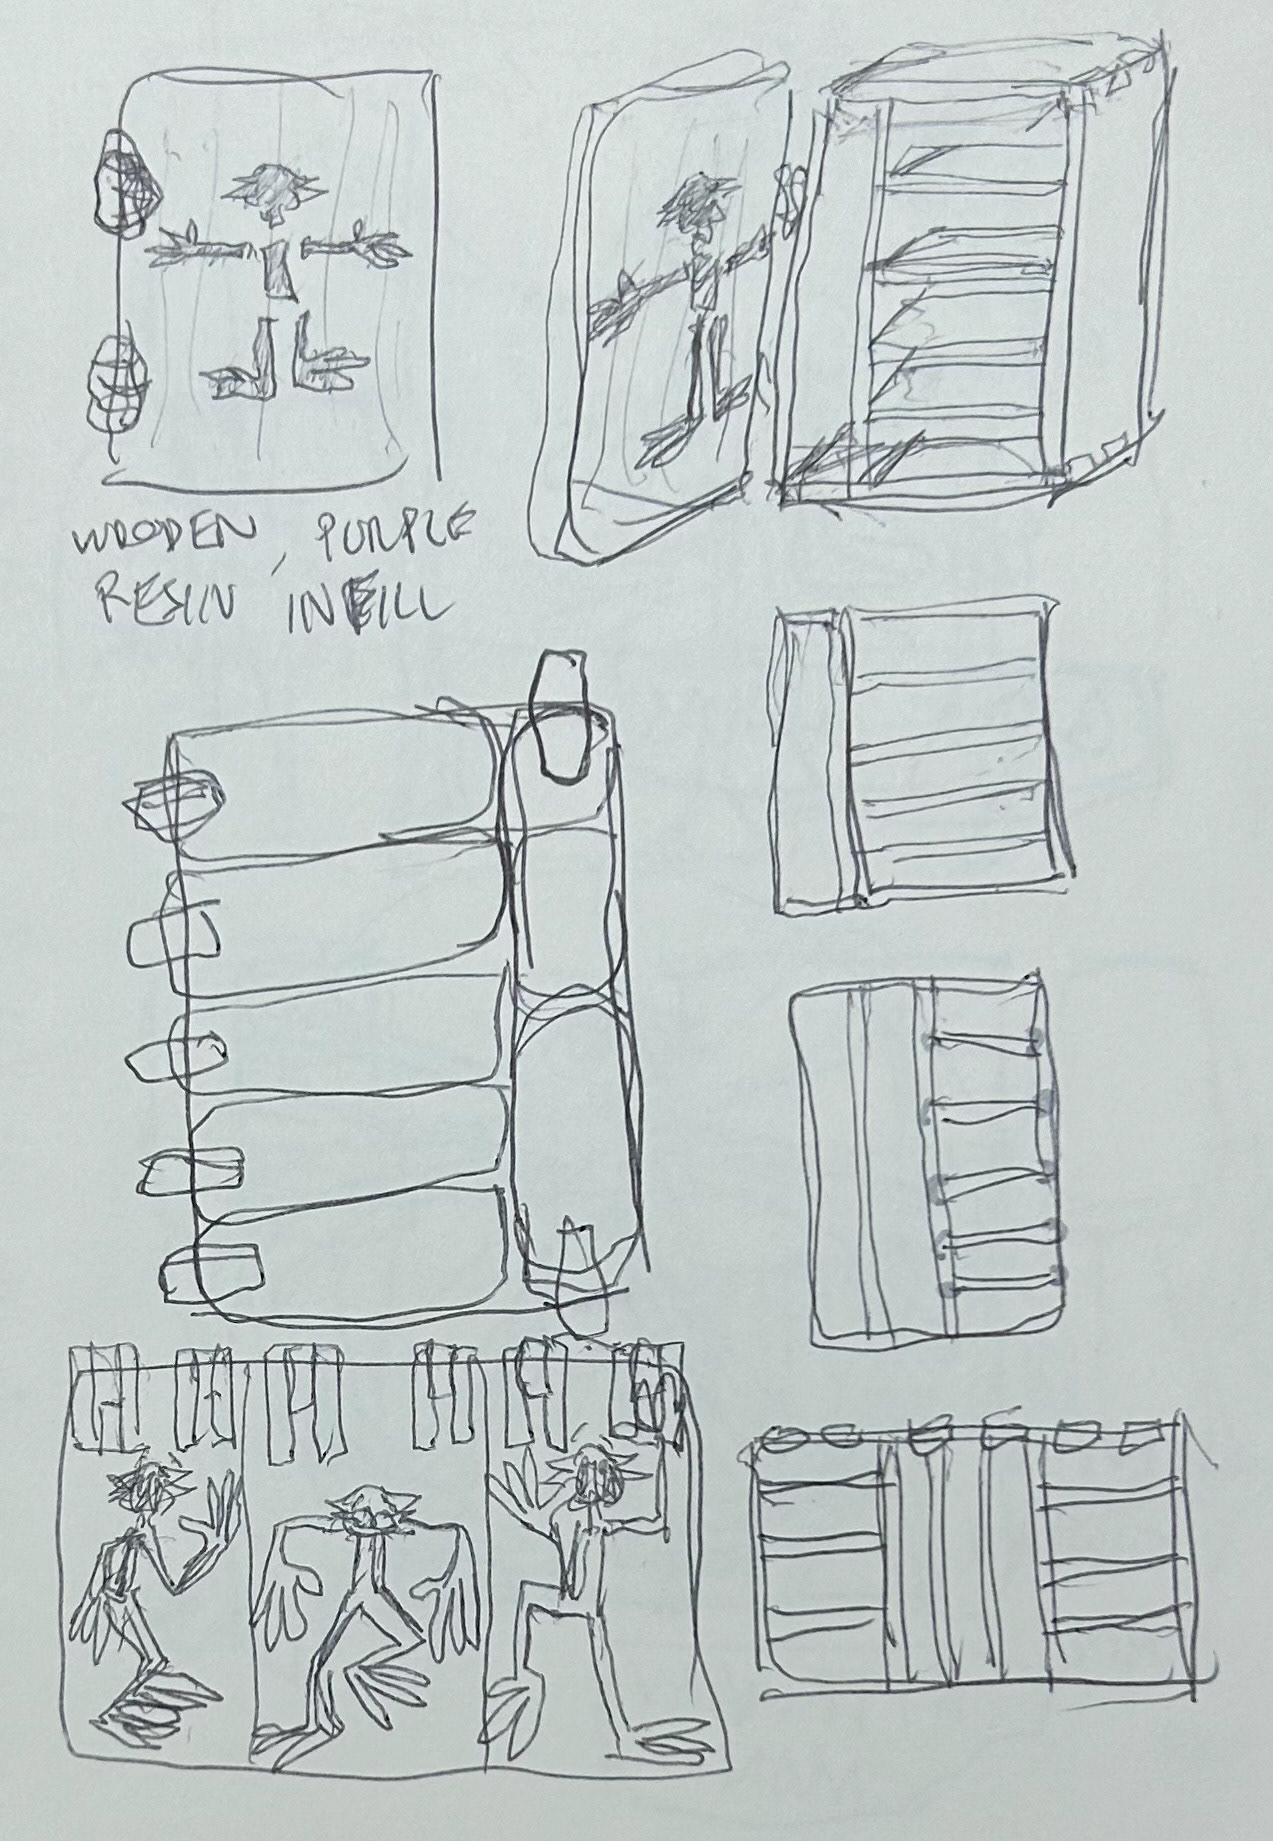 WOODEN, PURPLE
RESIN INFILL